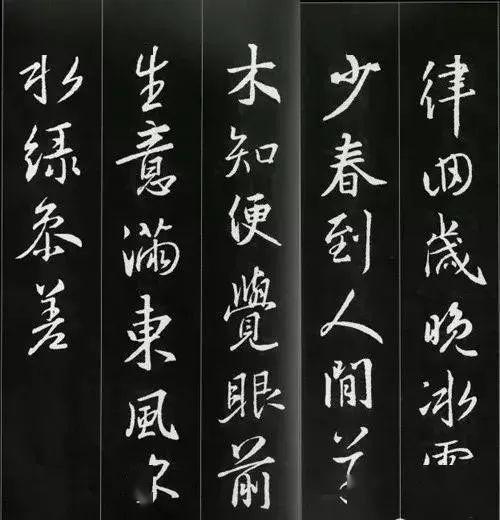 律囬歲晚冰
少春到人間
木知便覺眼前
生意滿東風
水綠參差